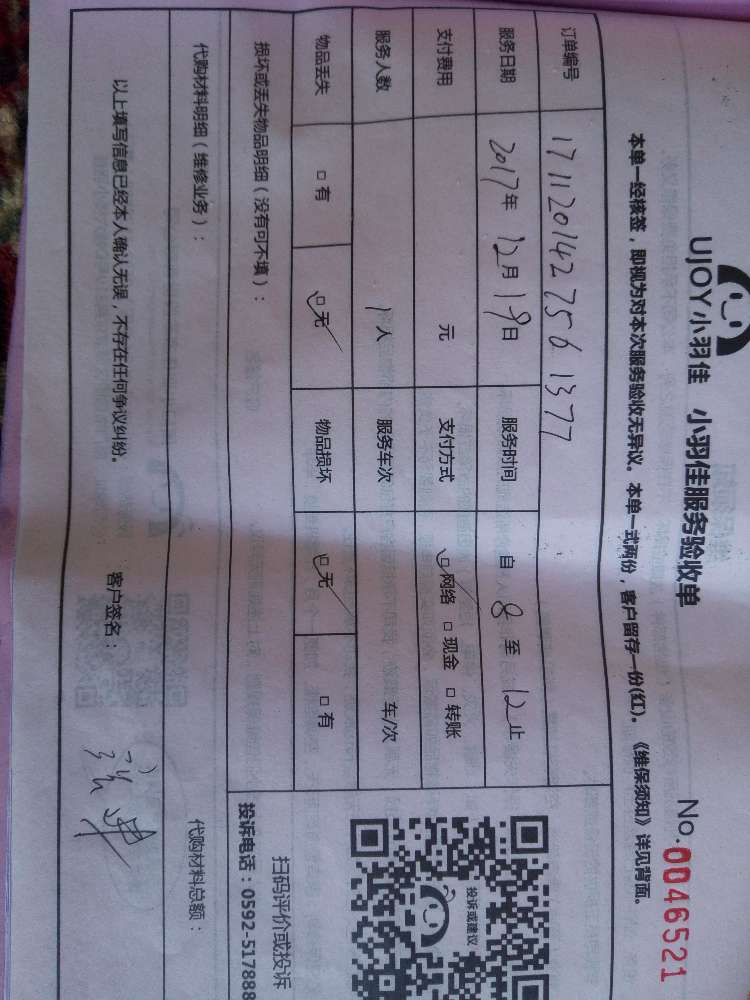 UJOY小羽佳 小羽佳服务验收单
No.0046521
本单一经核签，即视为对本次服务验收无异议。本单一式两份，客户留存一份(红)。《维保须知》详见背面。
订单编号 1711201427561377
服务日期 2017年12月19日 服务时间 自8至12止
支付费用 元 支付方式 □网络 □现金 □转账
服务人数 1人 服务车次 车/次
物品丢失 □有 □无 物品损坏 □无 □有
损坏或丢失物品明细（没有可不填）：
代购材料明细（维修业务）： 代购材料总额：
以上填写信息已经本人确认无误，不存在任何争议纠纷。 客户签名：
投诉或建议
扫码评价或投诉
投诉电话：0592-517888